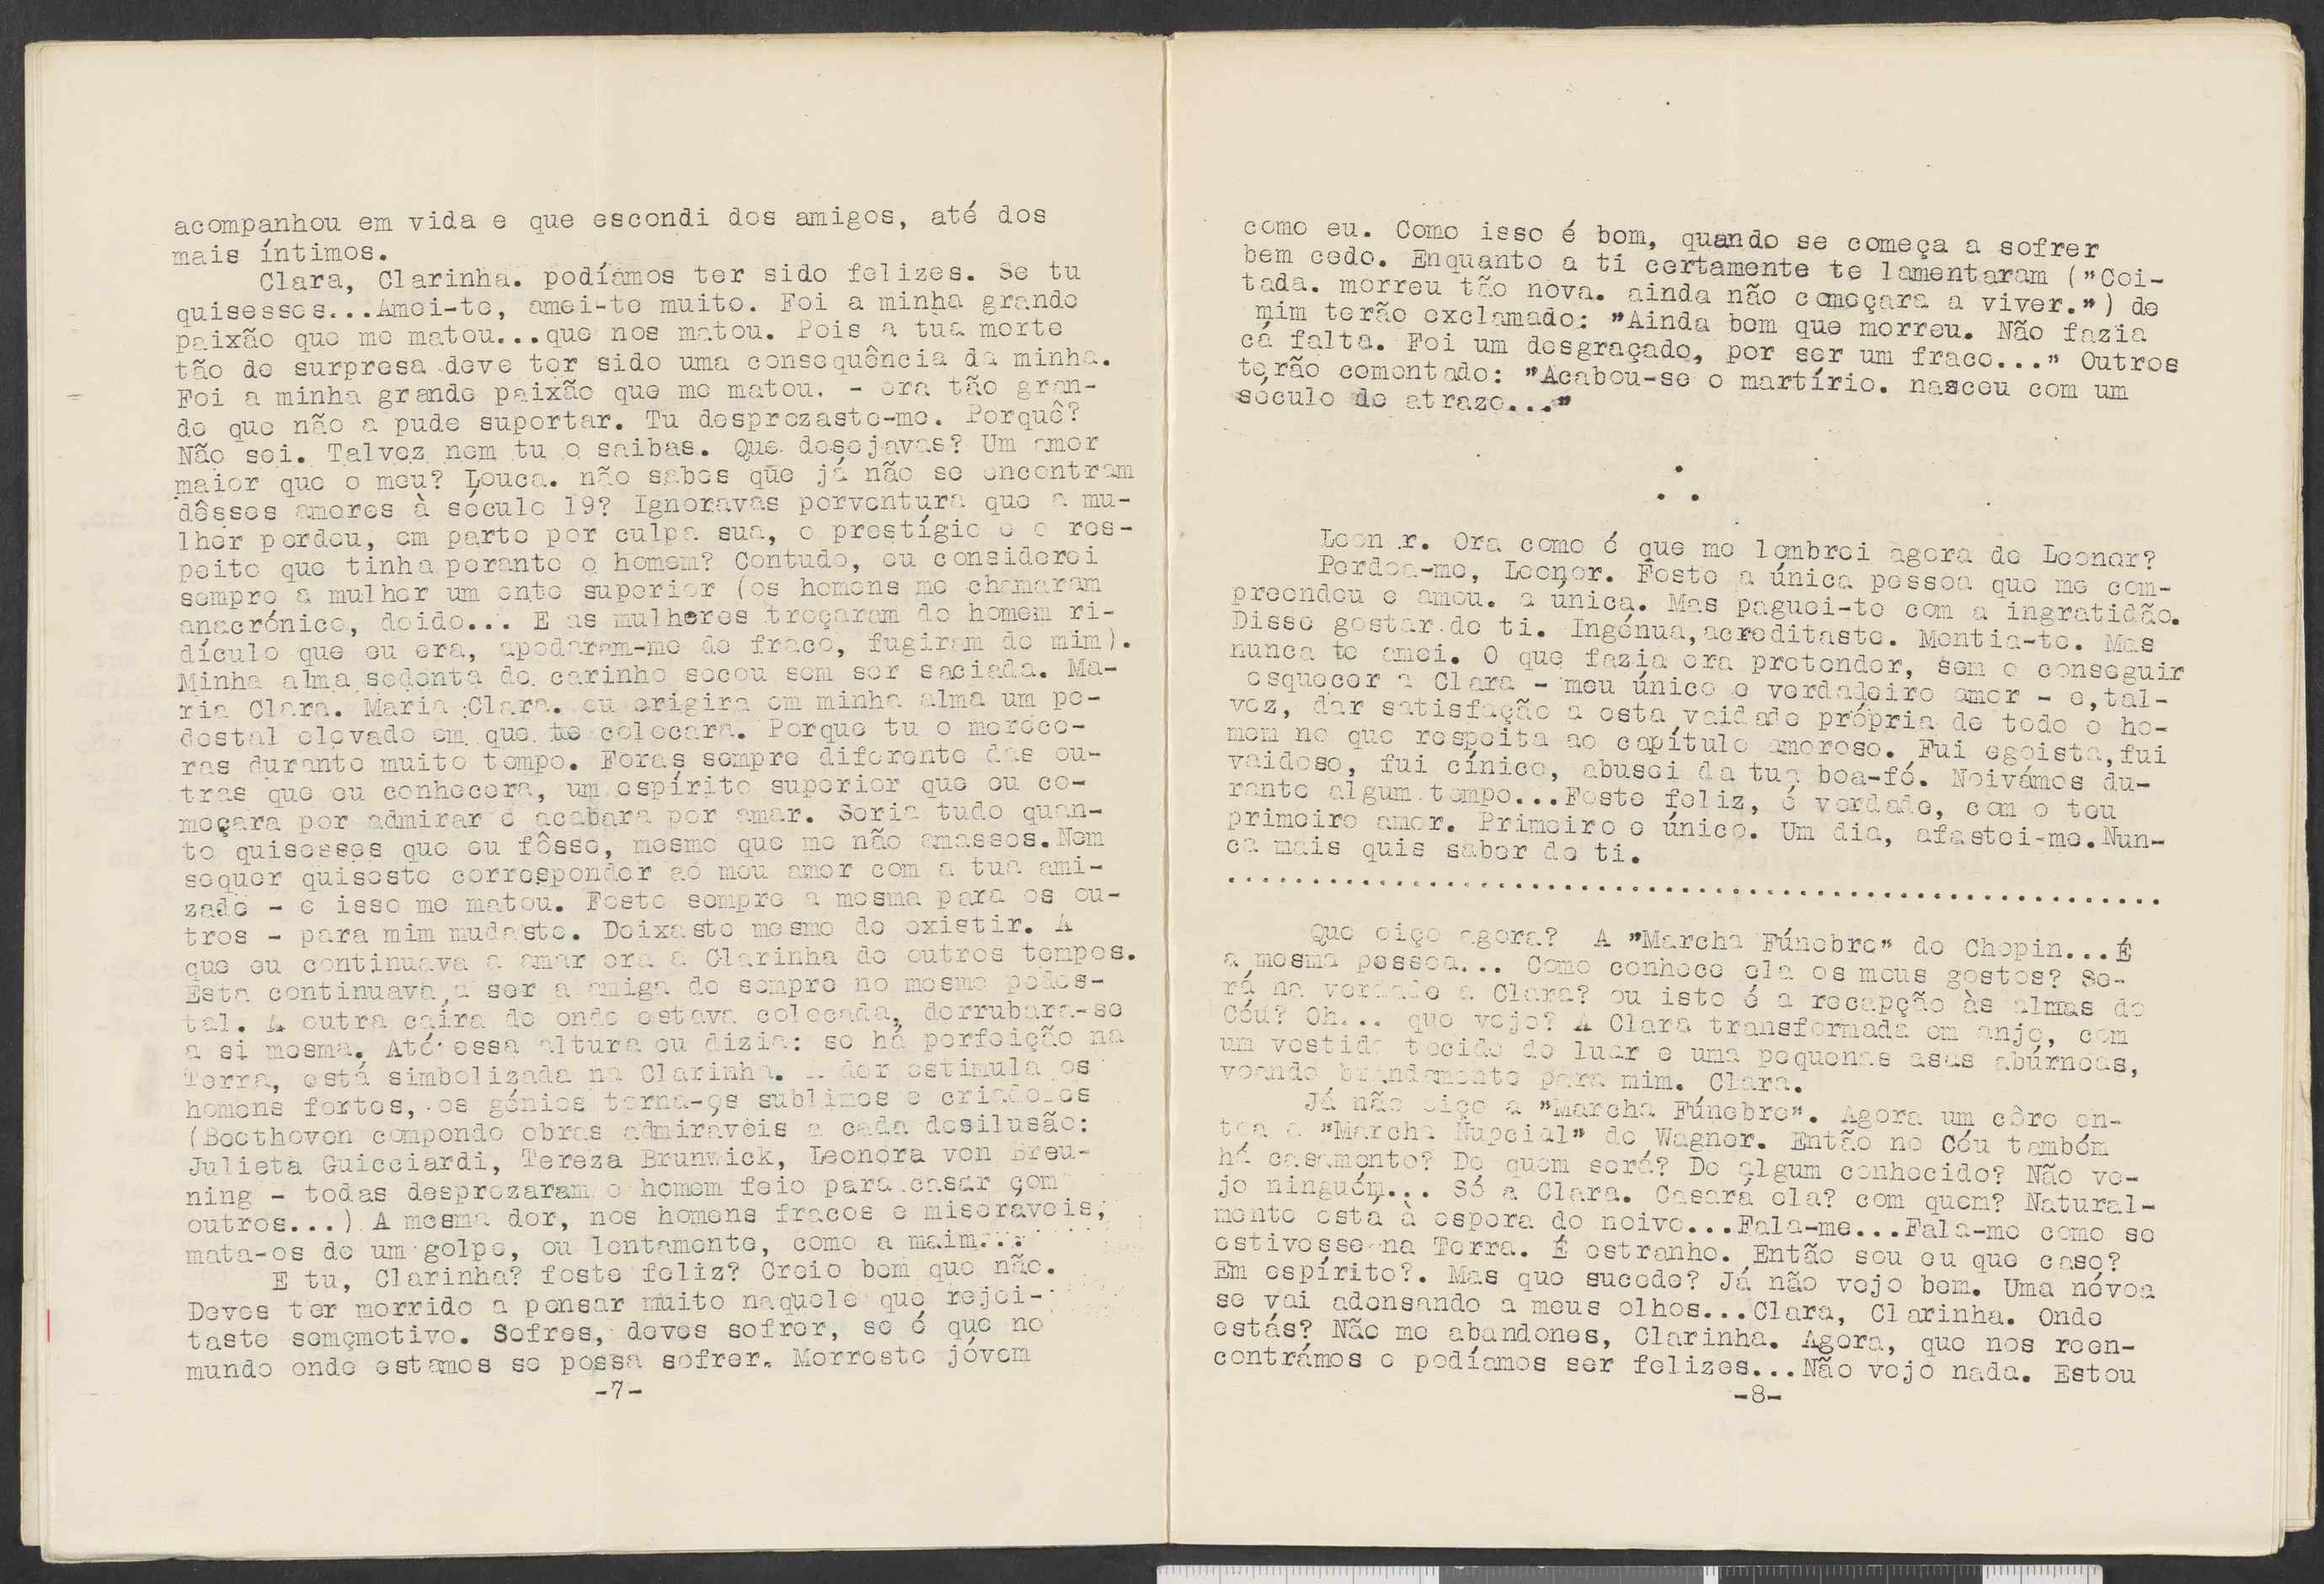 acompanhou em vida e que escondi dos amigos, até dos
mais íntimos.
Clara, Clarinha. podíamos ter sido felizes. Se tu
quisesses...Amei-te, amei-te muito. Foi a minha grande
paixão que me matou...que nos matou. Pois a tua morte
tão de surpresa deve ter sido uma consequência da minha.
Foi a minha grande paixão que me matou. - era tão gran-
de que não a pude suportar. Tu desprezaste-me. Porquê?
Não sei. Talvez nem tu o saibas. Que desejavas? Um amor
maior que o meu? Louca. não sabes que já não se encontram
dêsses amores à século 19? Ignoravas porventura que a mu-
lher perdeu, em parte por culpa sua, o prestígio e o res-
peito que tinha perante o homem? Contudo, eu considerei
sempre a mulher um ente superior (os homens me chamaram
anacrónico, doido... E as mulheres troçaram do homem ri-
dículo que eu era, apodaram-me de fraco, fugiram de mim).
Minha alma sedenta de carinho secou sem ser saciada. Ma-
ria Clara. Maria Clara. eu erigira em minha alma um pe-
destal elevado em que te colocara. Porque tu o merece-
ras durante muito tempo. Foras sempre diferente das ou-
tras que eu conhecera, um espírito superior que eu co-
meçara por admirar e acabara por amar. Seria tudo quan-
to quisesses que eu fôsse, mesmo que me não amasses.Nem
sequer quiseste corresponder ao meu amor com a tua ami-
zade - e isso me matou. Foste sempre a mesma para os ou-
tros - para mim mudaste. Deixaste mesmo de existir. A
que eu continuava a amar era a Clarinha de outros tempos.
Esta continuava a ser a amiga de sempre no mesmo pedes-
tal. A outra caíra de onde estava colocada, derrubara-se
a si mesma. Até essa altura eu dizia: se há perfeição na
Terra, está simbolizada na Clarinha. A dor estimula os
homens fortes, os génios torna-os sublimes e criadores
(Beethoven compondo obras admiraveis a cada desilusão:
Julieta Guicciardi, Tereza Brunwick, Leonora von Breu-
ning - todas desprezaram o homem feio para casar com
outros...) A mesma dor, nos homens fracos e miseraveis,
mata-os de um golpe, ou lentamente, como a maim...
E tu, Clarinha? foste feliz? Creio bem que não.
Deves ter morrido a pensar muito naquele que rejei-
taste semçmotivo. Sofres, deves sofrer, se é que no
mundo onde estamos se possa sofrer. Morreste jóvem
-7-
como eu. Como isso é bom, quando se começa a sofrer
bem cedo. Enquanto a ti certamente te lamentaram ("Coi-
tada. morreu tão nova. ainda não começara a viver.") de
mim terão exclamado: "Ainda bem que morreu. Não fazia
cá falta. Foi um desgraçado, por ser um fraco..." Outros
terão comentado: "Acabou-se o martírio. nasceu com um
século de atrazo..."
Leon r. Ora como é que me lembrei agora de Leonor?
Perdoa-me, Leonor. Foste a única pessoa que me com-
preendeu e amou. a única. Mas paguei-te com a ingratidão.
Disse gostar de ti. Ingénua,acreditaste. Mentia-te. Mas
nunca te amei. O que fazia era pretender, sem o conseguir
esquecer a Clara - meu único e verdadeiro amor - e,tal-
vez, dar satisfação a esta vaidade própria de todo o ho-
mem no que respeita ao capítulo amoroso. Fui egoista,fui
vaidoso, fui cínico, abusei da tua boa-fé. Noivámos du-
rante algum tempo...Foste feliz, é verdade, com o teu
primeiro amor. Primeiro e único. Um dia, afastei-me.Nun-
ca mais quis saber de ti.
............................................................
Que oiço agora? A "Marcha Fúnebre" de Chopin...É
a mesma pessoa... Como conhece ela os meus gostos? Se-
rá na verdade a Clara? ou isto é a recapção às almas do
Céu? Oh... que vejo? A Clara transformada em anjo, com
um vestido tecido de luar e uma pequenas asas abúrneas,
voando brandamente para mim. Clara.
Já não oiço a "Marcha Fúnebre". Agora um côro en-
toa a "Marcha Nupcial" de Wagner. Então no Céu também
há casamento? De quem será? De algum conhecido? Não ve-
jo ninguém... Só a Clara. Casará ela? com quem? Natural-
mente está à espera do noivo...Fala-me...Fala-me como se
estivesse na Terra. É estranho. Então sou eu que caso?
Em espírito?. Mas que sucede? Já não vejo bem. Uma névoa
se vai adensando a meus olhos...Clara, Clarinha. Onde
estás? Não me abandones, Clarinha. Agora, que nos reen-
contrámos e podíamos ser felizes...Não vejo nada. Estou
-8-